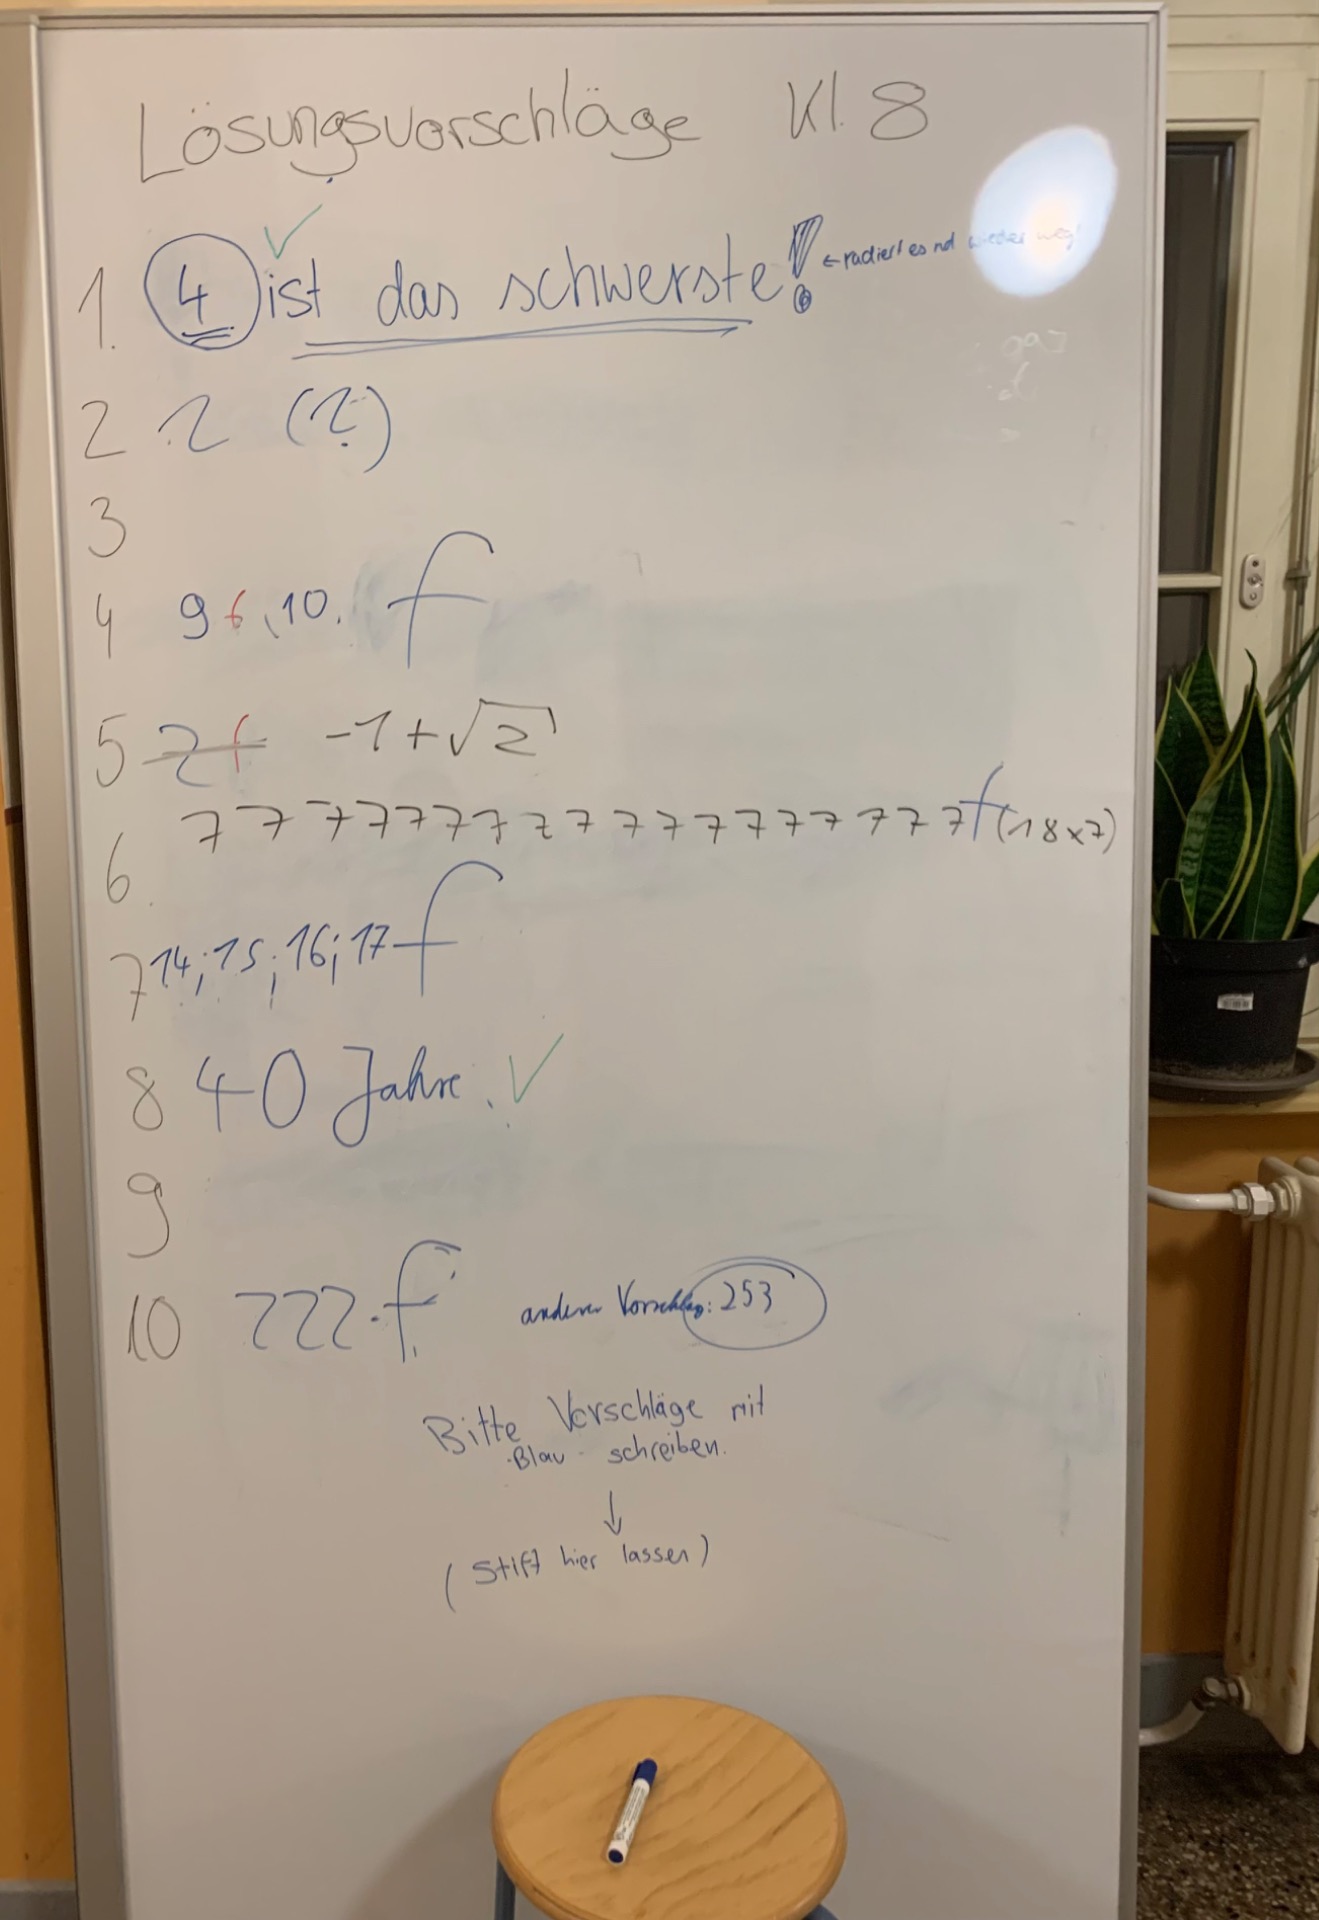 Lösungsvorschläge Kl. 8
1. 4 ist das schwerste! ← radiert es nd wieder weg!
2 2 (?)
3
4 9 f, 10. f
5 2 f -1+√2
6. 7 7 7 7 7 7 7 7 7 7 7 7 7 7 7 7 7 7 f (18x7)
7 14; 15; 16; 17 f
8 40 Jahre. ✓
9
10 222 f anderer Vorschlag: 253
Bitte Vorschläge mit
Blau schreiben.
↓
(Stift hier lassen)